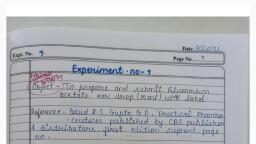 Expt. No. 1.
Date
Page No. 1
Experiment. no-1
Object - To prepare and submit Aluminium
acetate ear drop (15ml) with label
Reference - Gaud R.S, Gupta G.D, Practical Pharma
-ceutics published by CBS publisher
& distributors first edition reprint page
no.